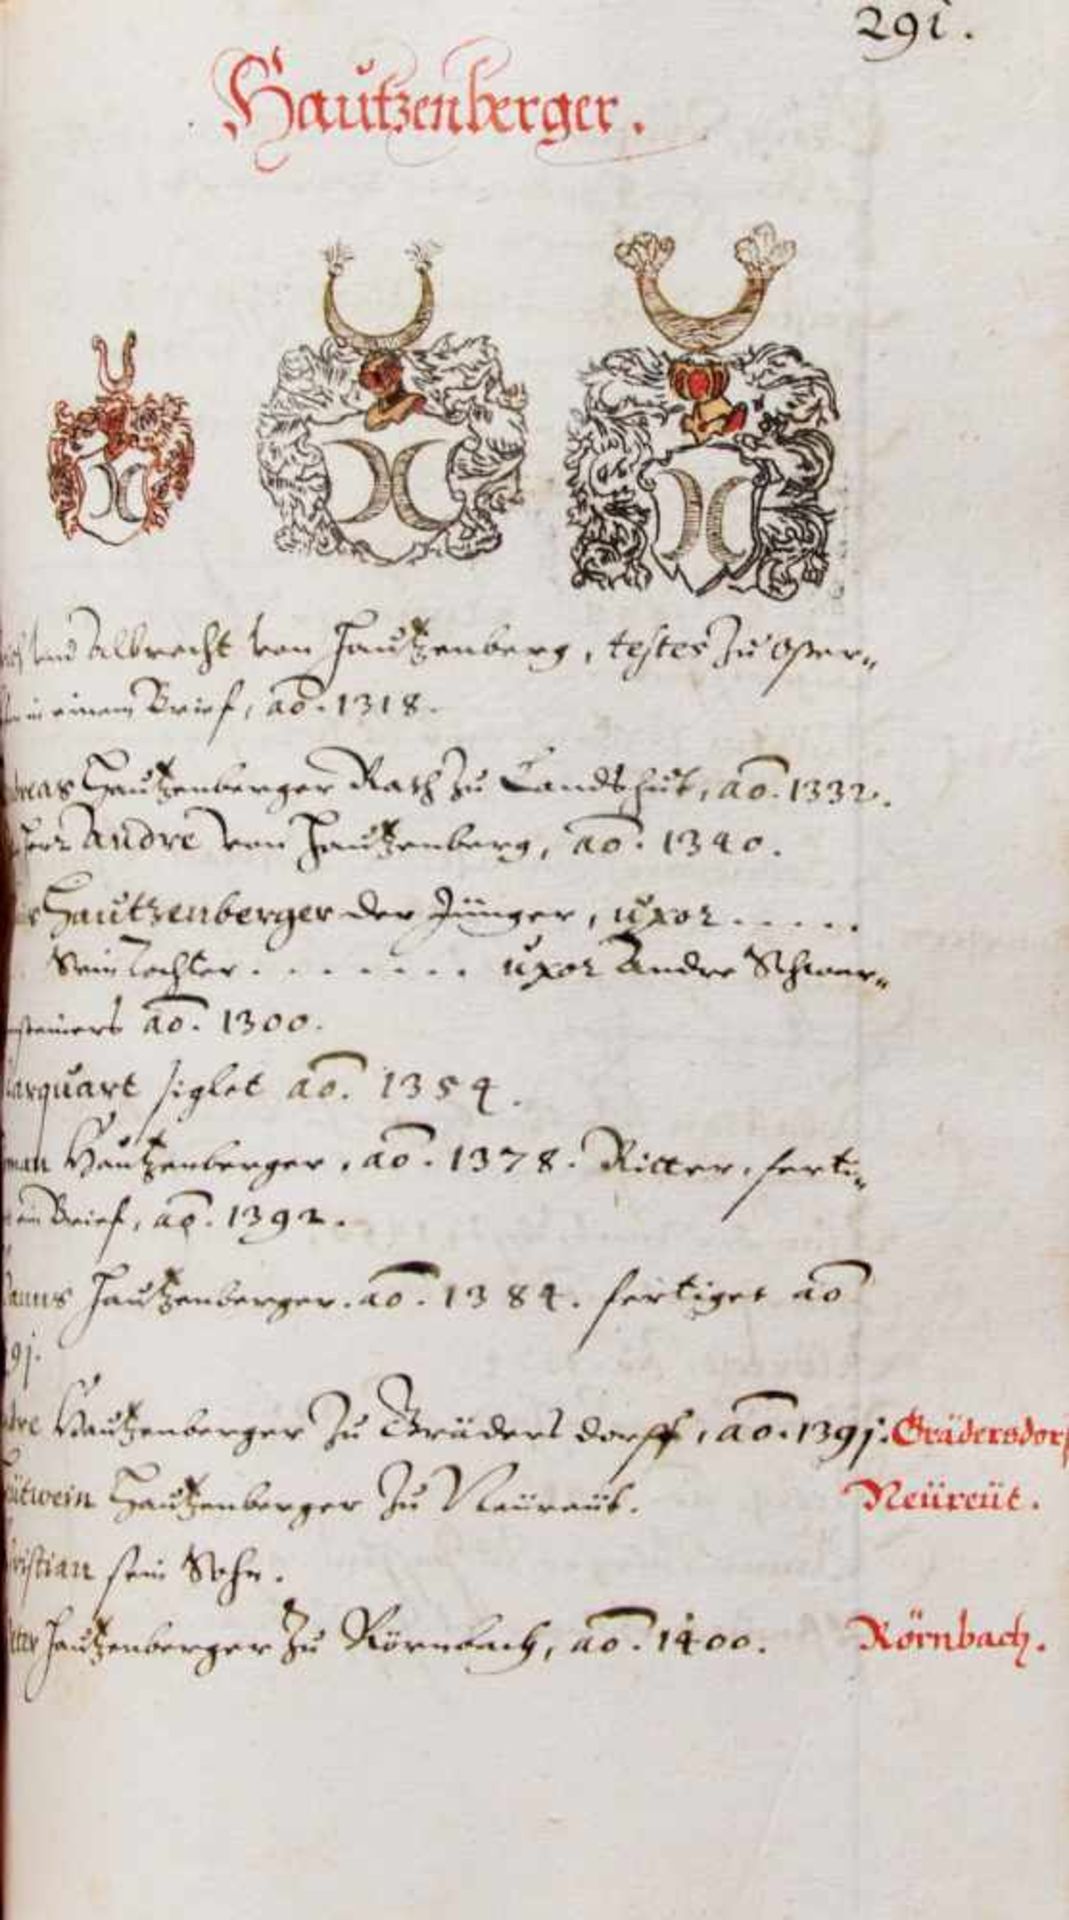 291.
Hautzenberger.
und Albrecht von Hautzenberg, testes zu Oster„
in einem Brief, ao. 1318.
Hautzenberger Rath zu Landshut, ao. 1332.
Herr Andre von Hautzenberg, ao. 1340.
Hautzenberger der Jünger, uxor . . . . .
Sein Tochter . . . . . . . uxor Andre Schwar„
ao. 1300.
siglet ao. 1354.
Hautzenberger, ao. 1378. Ritter, ferti„
ein Brief, ao. 1392.
Hautzenberger. ao. 1384. fertiget ao
91.
Hautzenberger zu Grädersdorff, ao. 1391. Grädersdorf
Hautzenberger zu Neüreüt. Neüreüt.
sein Sohn.
Hautzenberger zu Rörnbach, ao. 1400. Rörnbach.